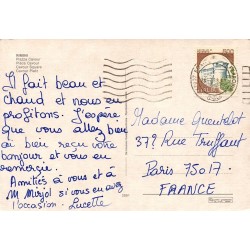 RIMINI
Piazza Cavour
Place Cavour
Cavour Square
Cavour Platz
Il fait beau et
chaud et nous en
profitons. J'espère
que vous allez bien
ai bien reçu votre
bonjour et vous en
remercie.
Amitiés à vous et à
M Mirjol si vous en avez
l'occasion. Lucette
Madame Quenvelot
37? Rue Truffaut
Paris 75017
FRANCE